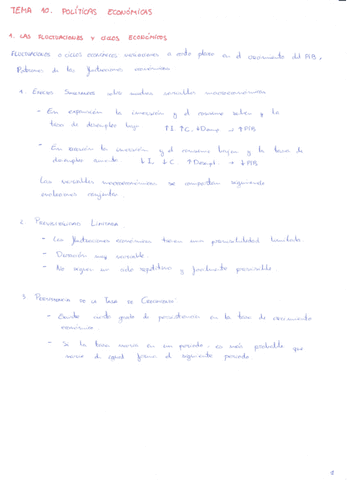 TEMA 10. POLÍTICAS ECONÓMICAS
1. LAS FLUCTUACIONES Y CICLOS ECONÓMICOS
FLUCTUACIONES o ciclos económicos variaciones a corto plazo en el crecimiento del PIB,
Patrones de las fluctuaciones económicas
1. Efectos sobre muchas variables macroeconómicas
- En expansión la inversión y el consumo suben y la
tasa de desempleo baja ↑I, ↑C, ↓Desemp → ↑PIB
- En recesión la inversión y el consumo bajan y la tasa de
desempleo aumenta ↓I, ↓C ↑Desempl. → ↓PIB
Las variables macroeconómicas se comportan siguiendo
evoluciones conjuntas.
2. Previsibilidad Limitada
- Las fluctuaciones económicas tienen una previsibilidad limitada
- Duración muy variable.
- No siguen un ciclo repetitivo y fácilmente previsible
3. Persistencia de la Tasa de Crecimiento:
- Existe cierto grado de persistencia en la tasa de crecimiento
económico.
- Si la tasa crece en un periodo, es más probable que
crezca de igual forma el siguiente periodo